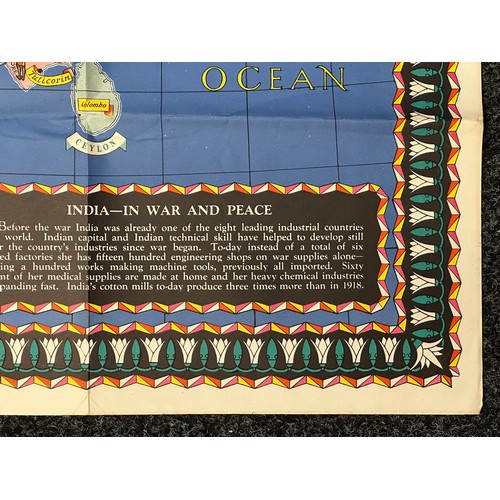 OCEAN
Tuticorin
Colombo
CEYLON
INDIA—IN WAR AND PEACE
Before the war India was already one of the eight leading industrial countries
world. Indian capital and Indian technical skill have helped to develop still
the country's industries since war began. To-day instead of a total of six
ed factories she has fifteen hundred engineering shops on war supplies alone—
ing a hundred works making machine tools, previously all imported. Sixty
nt of her medical supplies are made at home and her heavy chemical industries
panding fast. India's cotton mills to-day produce three times more than in 1918.